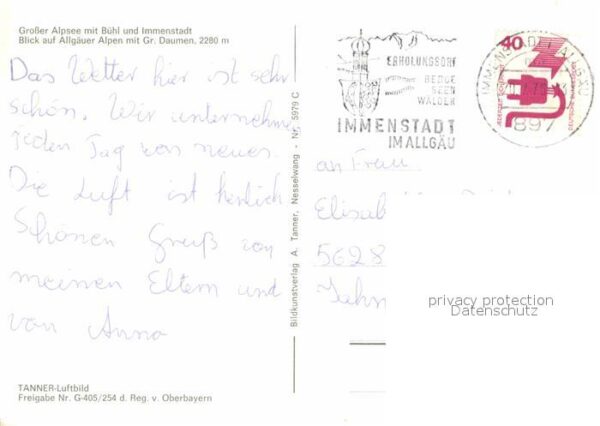 Großer Alpsee mit Bühl und Immenstadt
Blick auf Allgäuer Alpen mit Gr. Daumen, 2280 m
Das Wetter hier ist sehr
schön. Wir unternehmen
jeden Tag was neues.
Die Luft ist herrlich
Schönen Gruß von
meinen Eltern und
von Anna
TANNER-Luftbild
Freigabe Nr. G-405/254 d. Reg. v. Oberbayern
Bildkunstverlag A. Tanner, Nesselwang - Nr. 5979 C
ERHOLUNGSORT
BERGE
SEEN
WÄLDER
IMMENSTADT
IM ALLGÄU
40
IMMENSTADT ALLGÄU
897
JEDERZEIT SICHERHEIT
DEUTSCHE BUNDESPOST
an Frau
Elisab
5628
privacy protection
Datenschutz